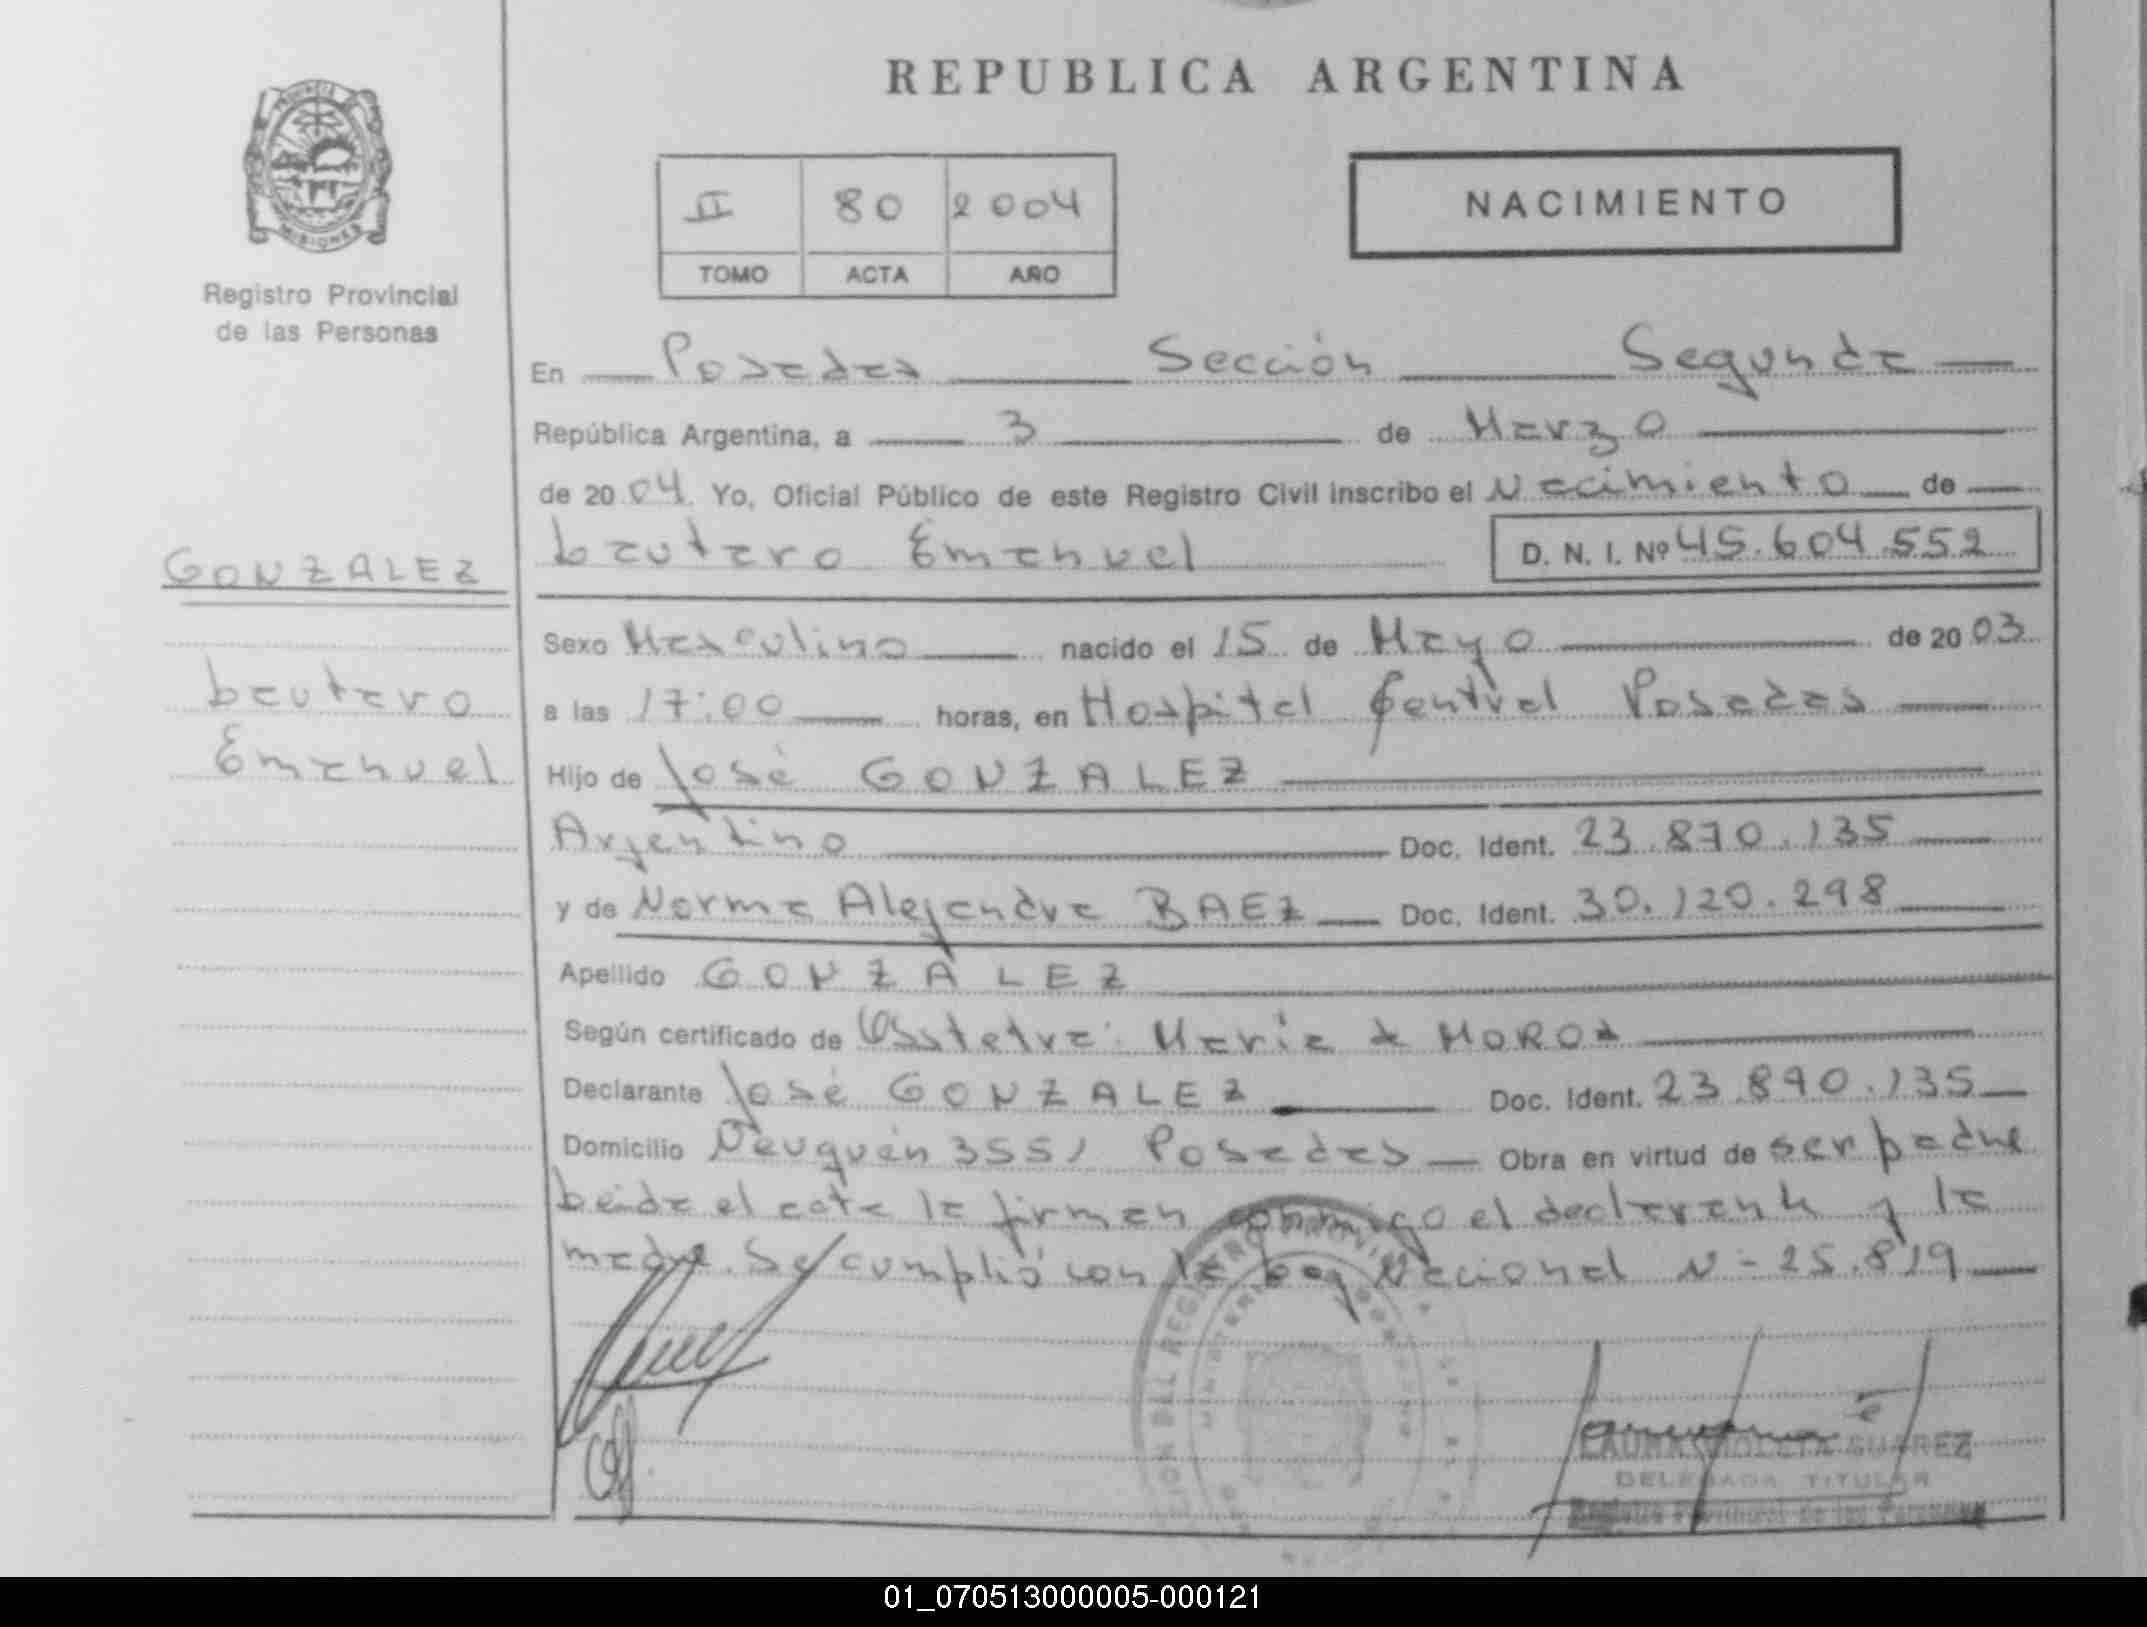 REPUBLICA ARGENTINA
PROVINCIA DE MISIONES
Registro Provincial
de las Personas
II 80 2004
TOMO ACTA AÑO
NACIMIENTO
En Posadas Sección Segunda
República Argentina, a 3 de Marzo
de 2004 Yo, Oficial Público de este Registro Civil inscribo el Nacimiento de
Lautaro Emanuel D. N. I. Nº 45.604.552
GONZALEZ
Lautaro
Emanuel
Sexo Masculino nacido el 15 de Mayo de 2003
a las 17:00 horas, en Hospital Central Posadas
Hijo de José GONZALEZ
Argentino Doc. Ident. 23.890.135
y de Norma Alejandra BAEZ Doc. Ident. 30.120.298
Apellido GONZALEZ
Según certificado de Obstetra: María MOROZ
Declarante José GONZALEZ Doc. Ident. 23.890.135
Domicilio Neuquén 3551 Posadas Obra en virtud de ser padre
Leída el acta la firman conmigo el declarante y la
madre. Se cumplió con la Ley Nacional N- 25.819
LAURA VIOLETA SUAREZ
DELEGADA TITULAR
Registro Provincial de las Personas
01_070513000005-000121